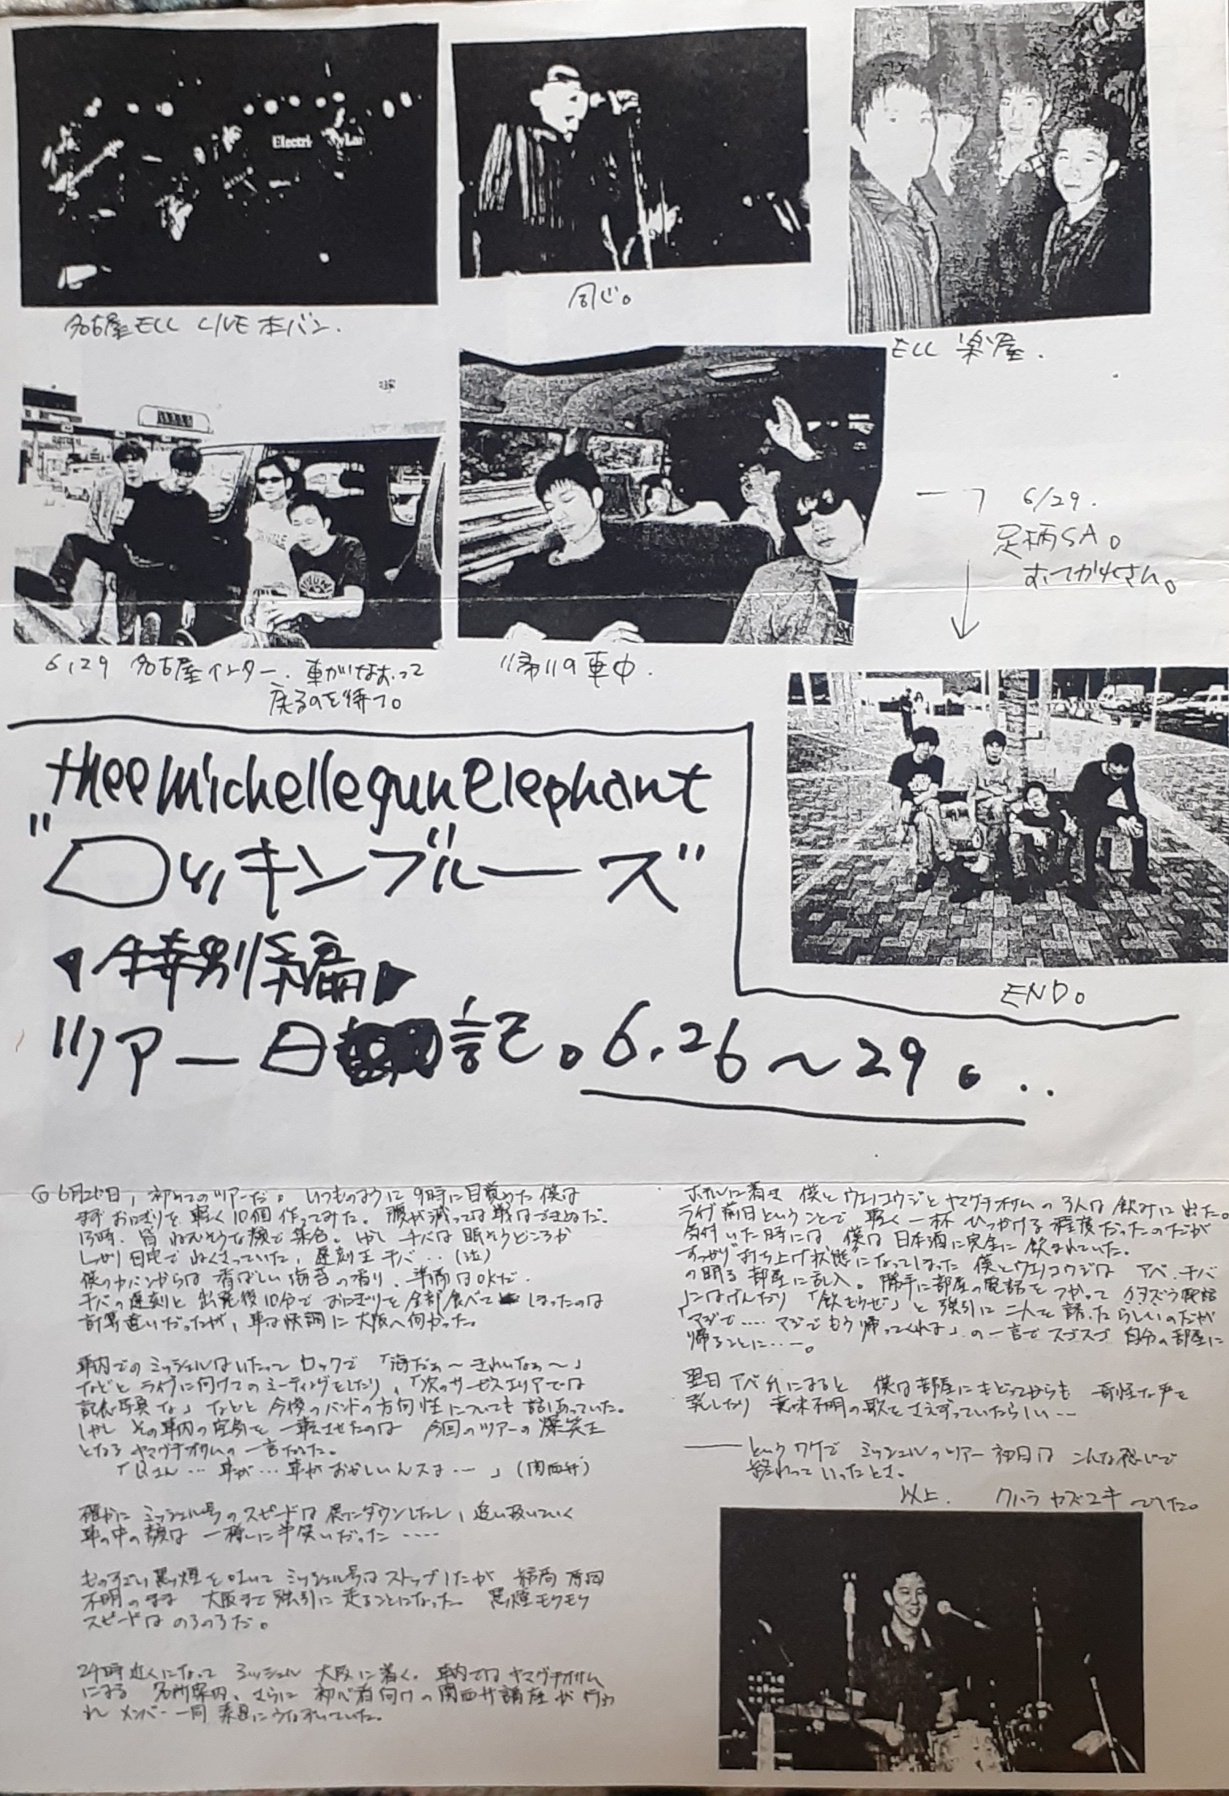 Electri Lar
名古屋ELL LIVE本バン.
同じ。
ELL 楽屋.
6,29 名古屋インター. 車がなおって
戻るのを待つ。
帰りの車中.
6/29.
足柄SA。
おつかれさん。
END。
thee michelle gun elephant
"ロッキンブルーズ"
特別編
ツアー日記。6.26〜29。..
◎6月26日, 初めてのツアーだ。いつものように9時に目覚めた僕は
まずおにぎりを軽く10個作ってみた。腹が減っては戦はできぬだ。
13時. 皆ねむそうな顔で集合。しかしチバは眠そうどころか
しっかり自宅でねくさっていた, 遅刻王チバ…(泣)
僕のカバンからは香ばしい海苔の香り. 準備はOKだ.
チバの遅刻と出発後10分でおにぎりを全部食べてしまったのは
計算違いだったが, 車は快調に大阪へ向かった。
車内でのミッシェルはいたってロックで「海だぁ〜きれいなぁ〜」
などとライヴに向けてのミーティングをしたり,「次のサービスエリアでは
記念写真な」などと今後のバンドの方向性についても話しあっていた。
しかしその車内の空気を一転させたのは 今回のツアーの爆笑王
となるヤマグチオサムの一言だった。
車が…車がおかしいんスよ…」(関西弁)
確かにミッシェル号のスピードは異常にダウンしたし, 追い抜いていく
車の中の顔は一様に半笑いだった……
ものすごい黒煙を吐いてミッシェル号はストップしたが 結局原因
不明のまま 大阪まで強引に走ることになった. 黒煙モクモク
スピードはのろのろだ。
24時近くになってミッシェル 大阪に着く. 車内ではヤマグチオサム
による名所案内, さらに初心者向けの関西弁講座が行わ
れメンバー一同素直にうなずいていた。
ホテルに着き 僕とウエノコウジとヤマグチオサムの3人は飲みに出た。
ライヴ前日ということで 軽く一杯ひっかける程度だったのだが
気付いた時には, 僕は日本酒に完全に飲まれていた。
すっかり"打ち上げ状態"になってしまった僕とウエノコウジは アベ, チバ
の眠る部屋に乱入。勝手に部屋の電話をつかってイタズラ
「飲もうぜ」と強引に二人を誘ったらしいのだが
「マジで…. マジでもう帰ってくれよ」の一言でスゴスゴ自分の部屋に
帰ることに…。
翌日アベ君によると 僕は部屋にもどってからも 奇怪な声を
発したり 意味不明の歌をさえずっていたらしい…
というワケでミッシェルのツアー初日はこんな感じで
終わっていったとさ。
以上. クハラカズユキでした。